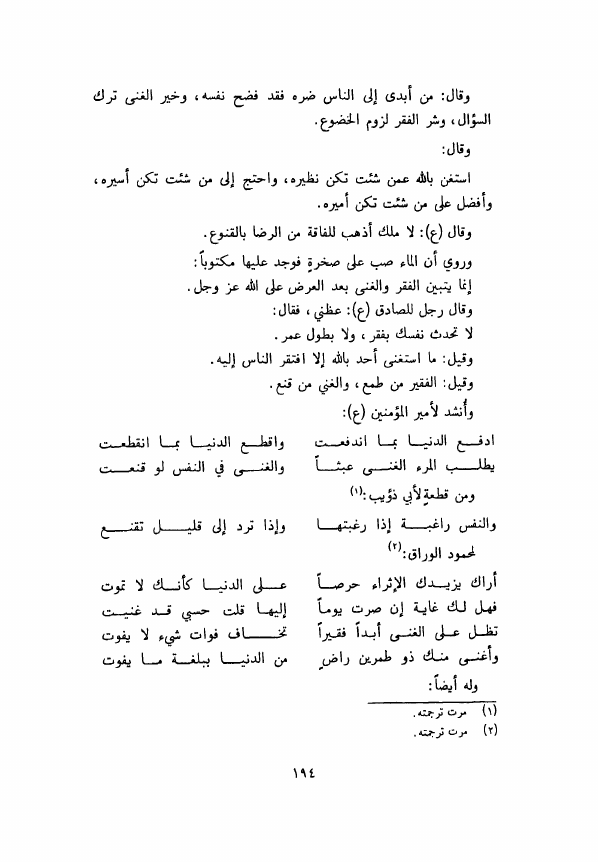 وقال: من أبدى إلى الناس ضره فقد فضح نفسه، وخير الغنى ترك
السؤال، وشر الفقر لزوم الخضوع.
وقال:
استغن بالله عمن شئت تكن نظيره، واحتج إلى من شئت تكن أسيره،
وأفضل على من شئت تكن أميره.
وقال (ع): لا ملك أذهب للفاقة من الرضا بالقنوع.
وروي أن الماء صب على صخرةٍ فوجد عليها مكتوباً:
إنما يتبين الفقر والغنى بعد العرض على الله عز وجل.
وقال رجل للصادق (ع): عظني، فقال:
لا تحدث نفسك بفقر، ولا بطول عمر.
وقيل: ما استغنى أحد بالله إلا افتقر الناس إليه.
وقيل: الفقير من طمع، والغني من قنع.
وأُنشد لأمير المؤمنين (ع):
ادفع الدنيا بما اندفعت واقطع الدنيا بما انقطعت
يطلب المرء الغنى عبثاً والغنى في النفس لو قنعت
ومن قطعةٍ لأبي ذؤيب:(١)
والنفس راغبة إذا رغبتها وإذا ترد إلى قليل تقنع
لمحمود الوراق:(٢)
أراك يزيدك الإثراء حرصاً على الدنيا كأنك لا تموت
فهل لك غاية إن صرت يوماً إليها قلت حسبي قد غنيت
تظل على الغنى أبداً فقيراً تخاف فوات شيء لا يفوت
وأغنى منك ذو طمرين راضٍ من الدنيا ببلغة ما يفوت
وله أيضاً:
(١) مرت ترجمته.
(٢) مرت ترجمته.
١٩٤